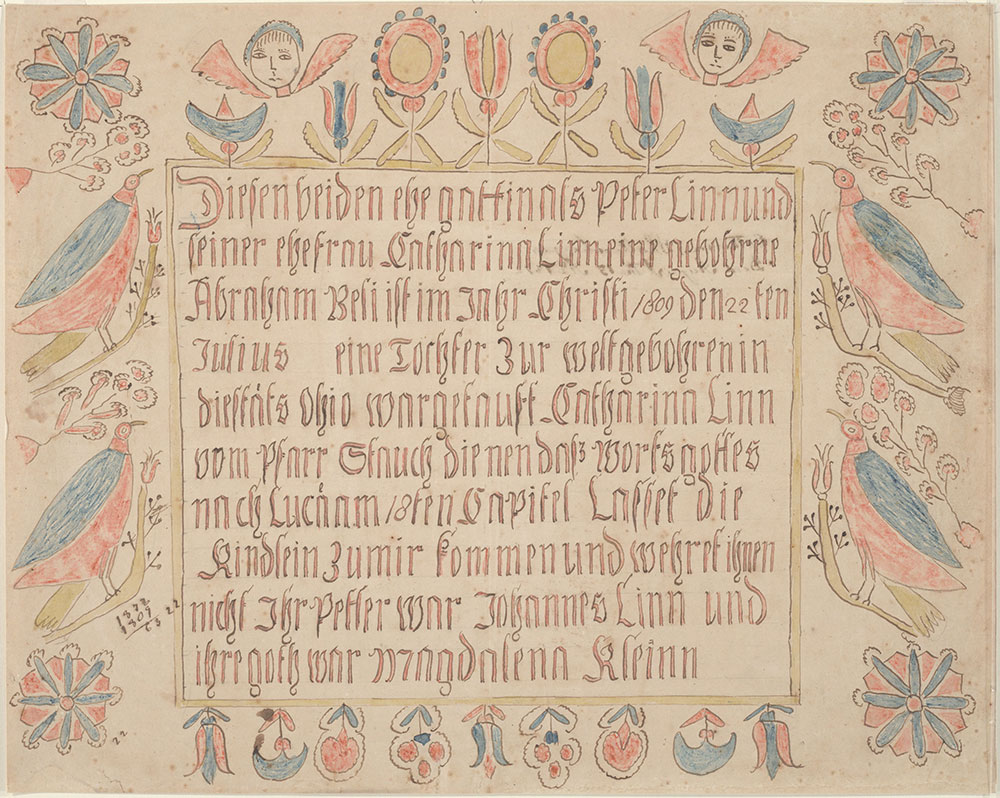 Diesen beiden ehe gattin als Peter Linn und
seiner ehefrau Catharina Linn eine gebohrne
Abraham Beli ist im Jahr Christi 1809 den 22 ten
Julius eine Tochter Zur welt gebohren in
die stäts Ohio war getauft Catharina Linn
vom Pfarr Stauch dienen daß Worts gottes
nach Lucä am 18ten Capitel Lasset Die
Kindlein Zu mir kommen und wehret ihnen
nicht Ihr Petter war Johannes Linn und
ihre goth war Magdalena Kleinn
22
22